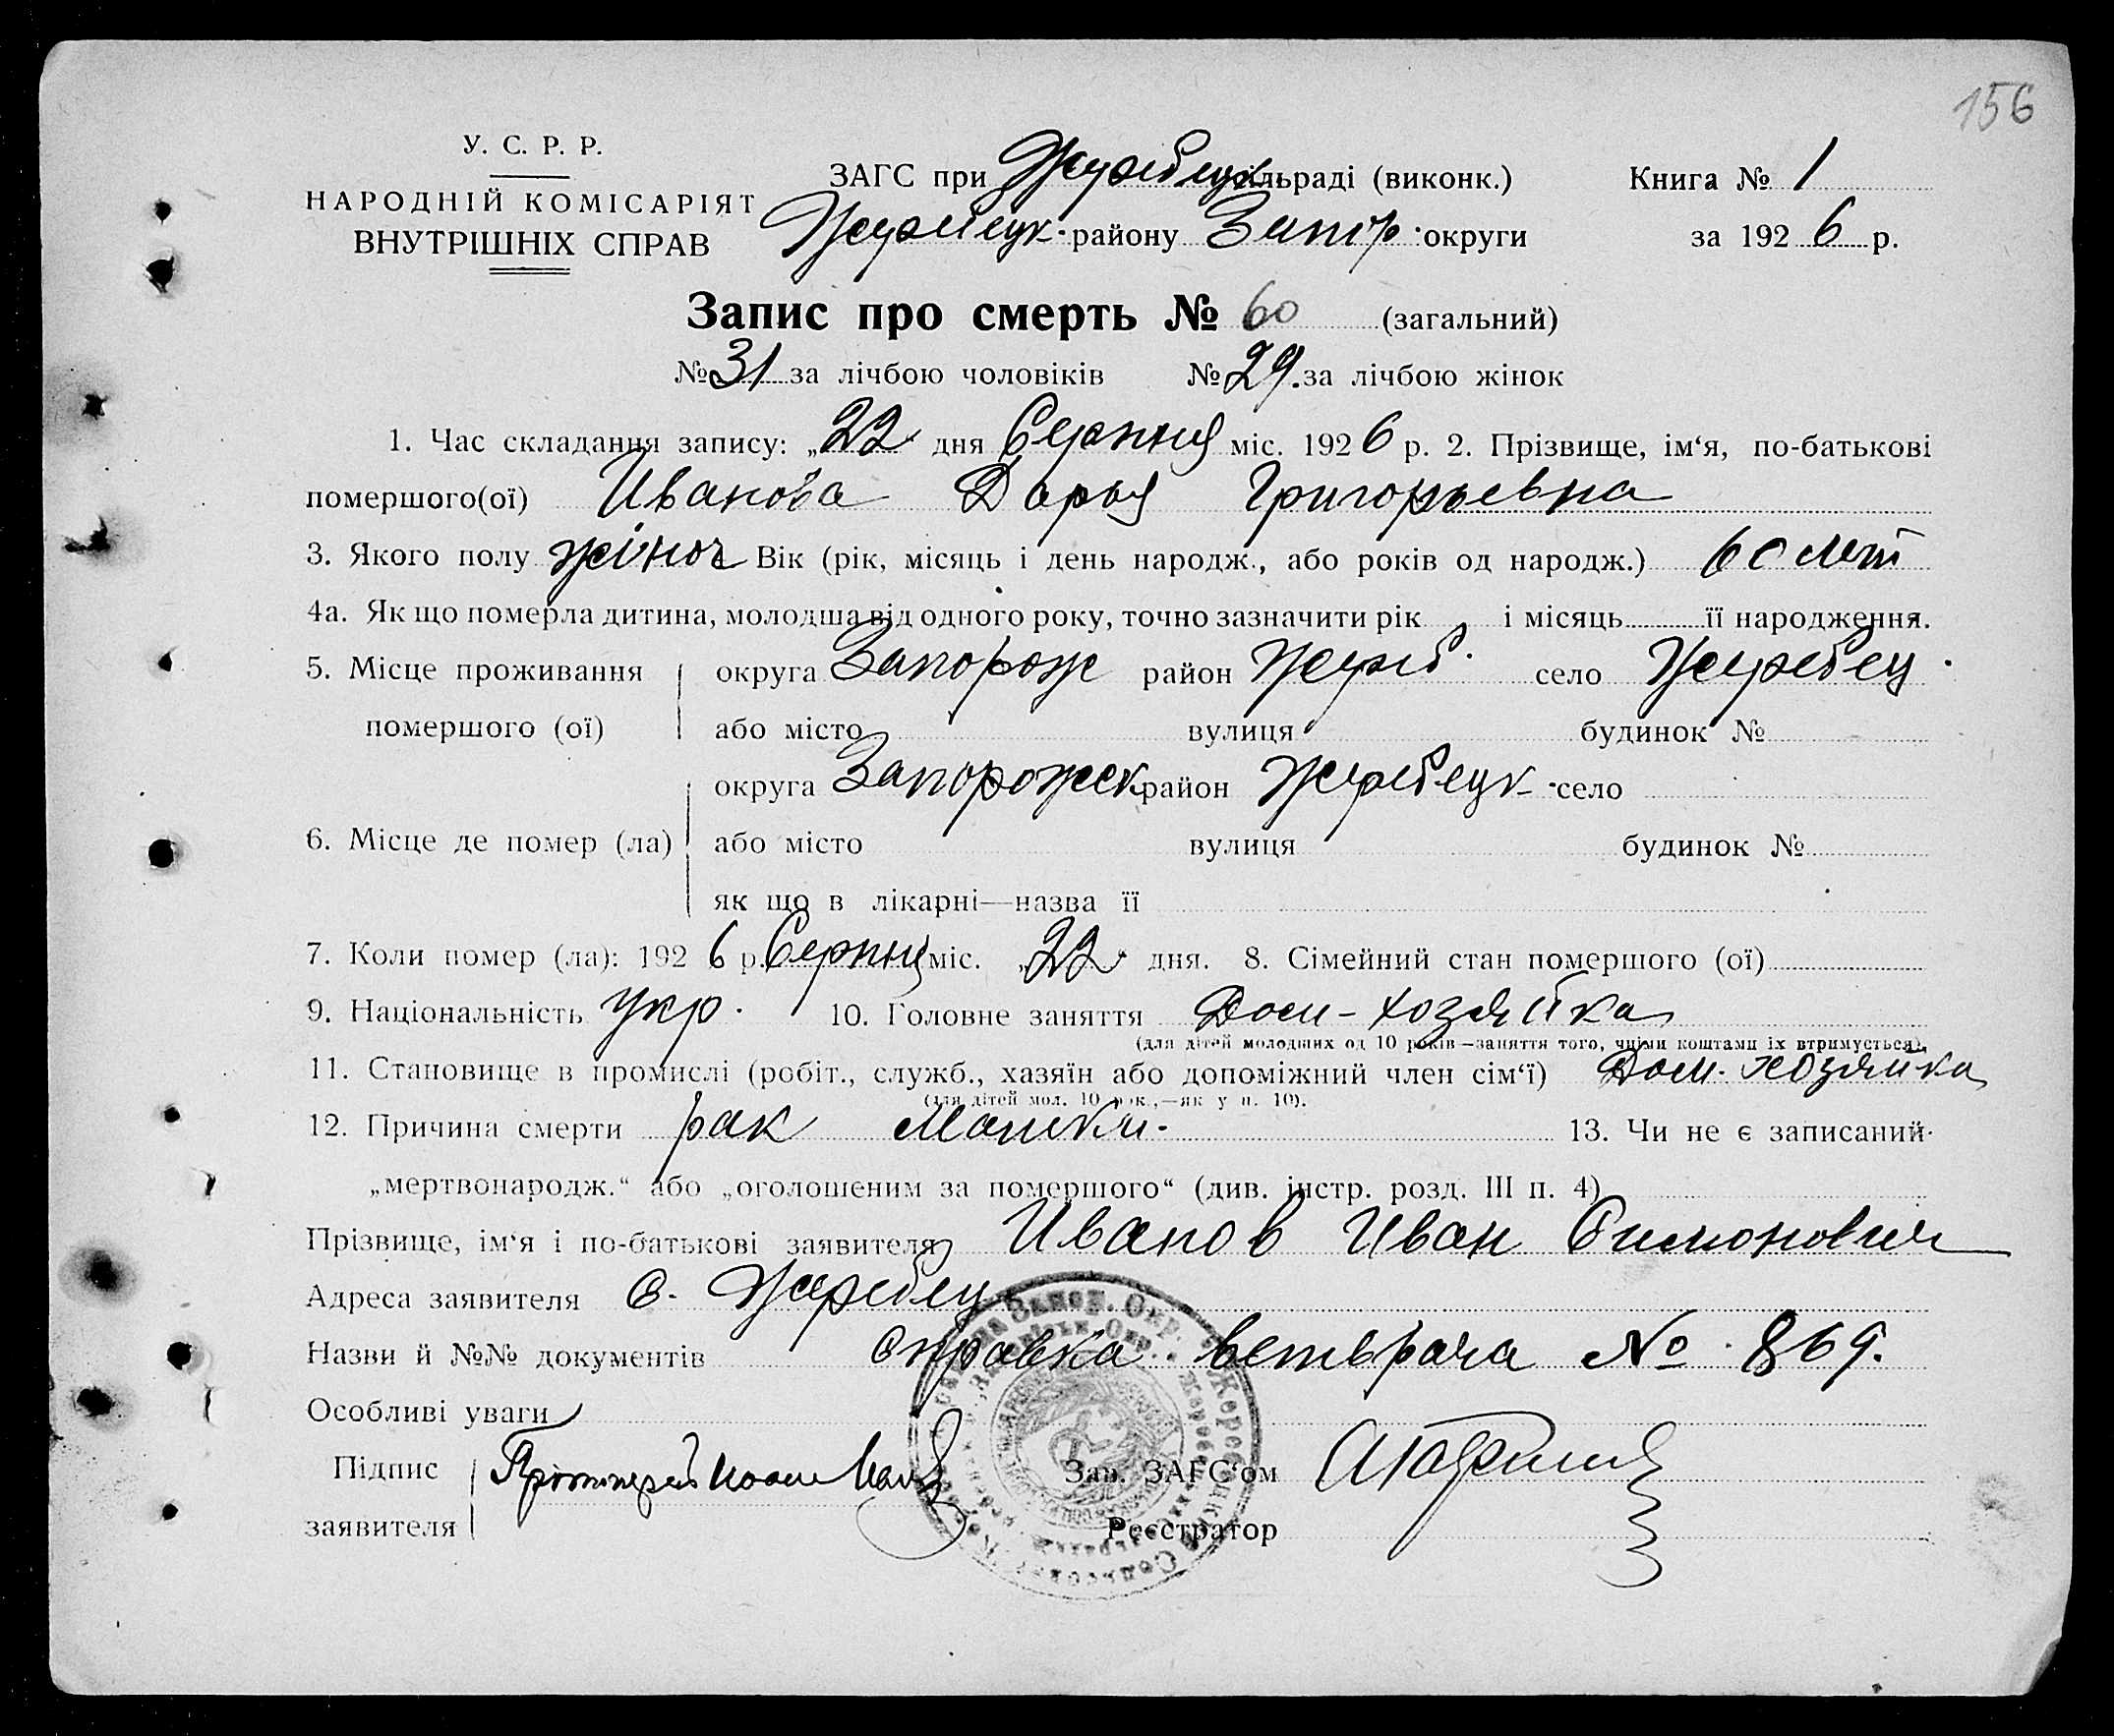 156
У. С. Р. Р.
НАРОДНІЙ КОМІСАРІЯТ
ВНУТРІШНІХ СПРАВ
ЗАГС при Жеребецк. сільраді (виконк.)
Жеребецк. району Запор. округи
Книга № 1
за 1926 р.
Запис про смерть № 60 (загальний)
№ 31 за лічбою чоловіків № 29. за лічбою жінок
1. Час складання запису: „22“ дня Серпня міс. 1926 р. 2. Прізвище, ім‘я, по-батькові
помершого(ої) Иванова Дарья Григорьевна
3. Якого полу жіноч Вік (рік, місяць і день народж., або років од народж.) 60 лет
4а. Як що померла дитина, молодша від одного року, точно зазначити рік і місяць її народження.
5. Місце проживання округа Запорож район Жереб. село Жеребец.
помершого (ої) або місто вулиця будинок №
округа Запорожск район Жеребецк. село
6. Місце де помер (ла) або місто вулиця будинок №
як що в лікарні—назва її
7. Коли помер (ла): 1926 р. Серпня міс. „22“ дня. 8. Сімейний стан помершого (ої)
9. Національність Укр. 10. Головне заняття Дом-хозяйка
(для дітей молодших од 10 років—заняття того, чиїми коштами їх втримується).
11. Становище в промислі (робіт., служб., хазяїн або допоміжний член сім‘ї) Дом. хозяйка
(для дітей мол. 10 рок.,—як у п. 10).
12. Причина смерти рак Матки. 13. Чи не є записаний
„мертвонародж.“ або „оголошеним за помершого“ (див. інстр. розд. III п. 4)
Прізвище, ім‘я і по-батькові заявителя Иванов Иван Симонович
Адреса заявителя с. Жеребец
Назви й №№ документів справка ветврача № 869.
Особливі уваги
Підпис Протоиерей Иоанн
заявителя
Зав. ЗАГС‘ом
Реєстратор